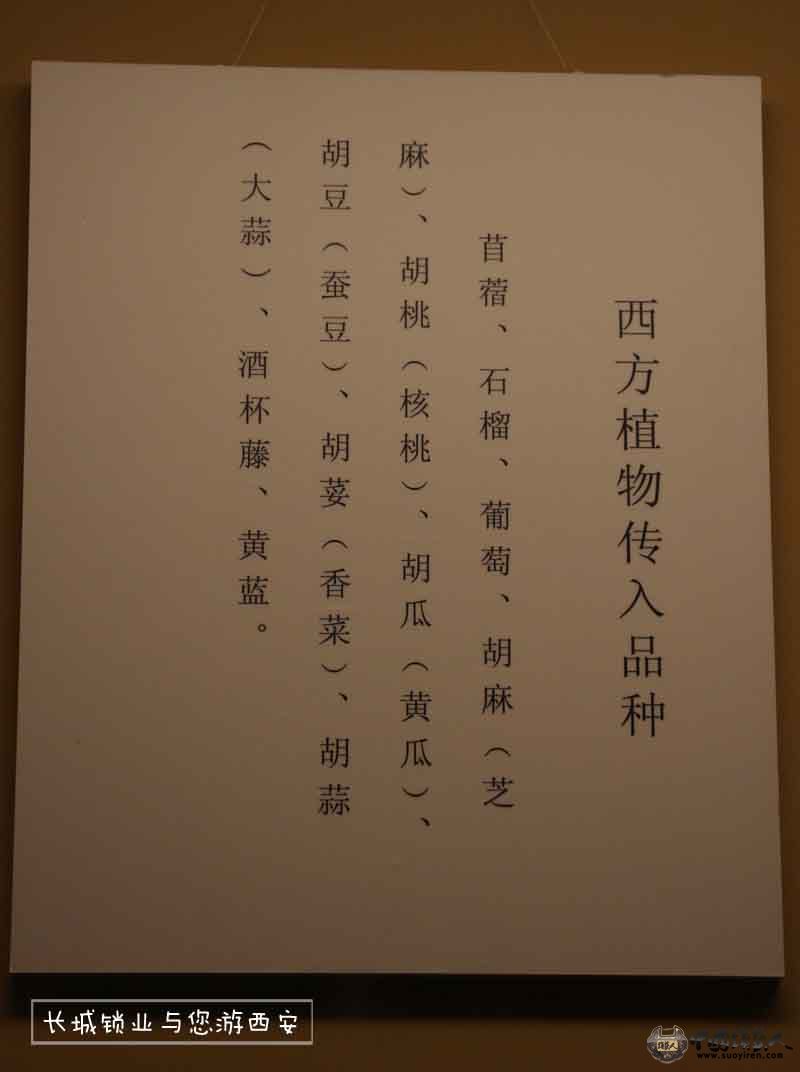 西方植物传入品种
苜蓿、石榴、葡萄、胡麻（芝
麻）、胡桃（核桃）、胡瓜（黄瓜）、
胡豆（蚕豆）、胡荽（香菜）、胡蒜
（大蒜）、酒杯藤、黄蓝。
长城锁业与您游西安
www.suoyiren.com